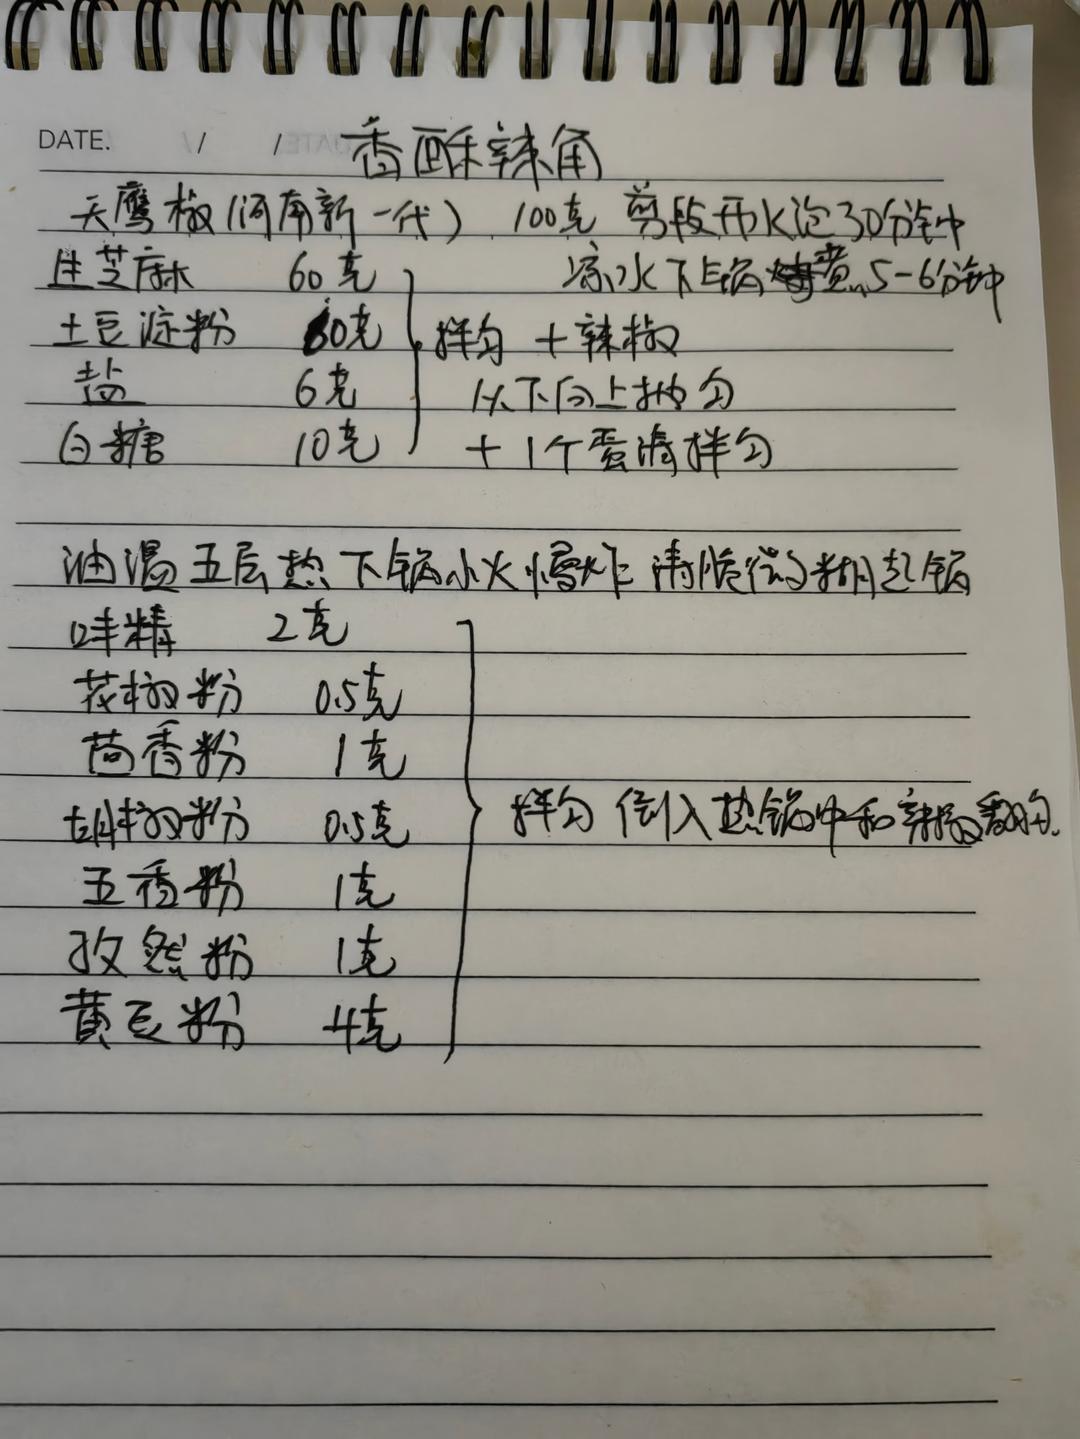 DATE. / / 香酥辣角
天鹰椒(河南新一代) 100克 剪段开水泡30分钟
生芝麻 60克 凉水下锅煮5-6分钟
土豆淀粉 60克 拌匀 + 辣椒
盐 6克 从下向上抄匀
白糖 10克 + 1个蛋清拌匀
油温五层热 下锅小火慢炸 清脆 起锅
味精 2克
花椒粉 0.5克
茴香粉 1克
胡椒粉 0.5克 拌匀 倒入热锅中和辣椒翻匀.
五香粉 1克
孜然粉 1克
黄豆粉 4克